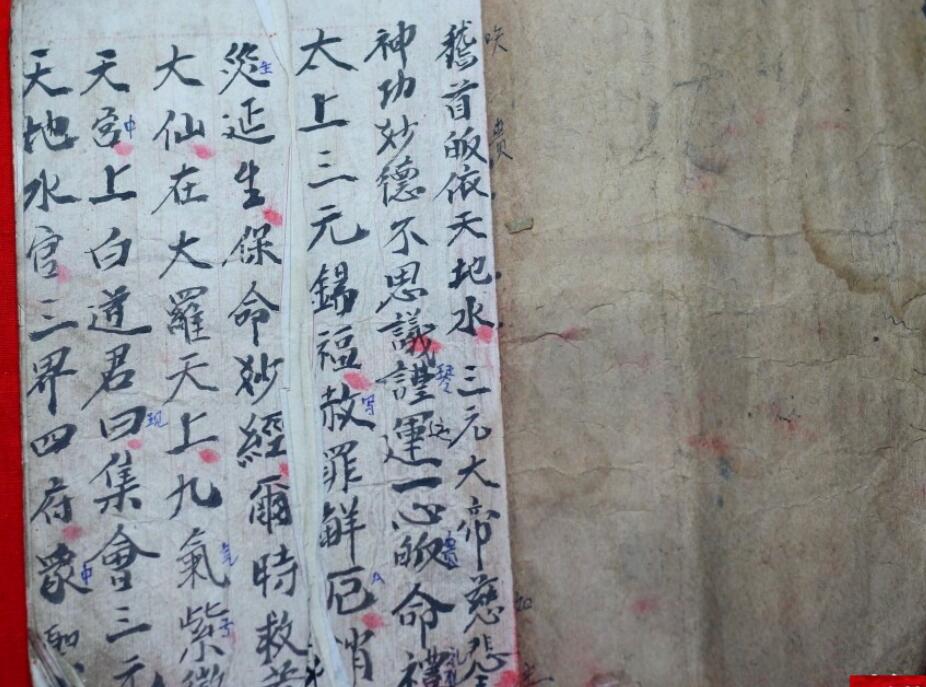 稽首皈依天地水三元大帝慈悲
神功妙德不思議謹運一心皈命禮
太上三元錫福赦罪觧厄消
災延生保命妙經爾時救苦
大仙在大羅天上九氣紫微
天宮上白道君曰集會三元
天地水官三界四府衆